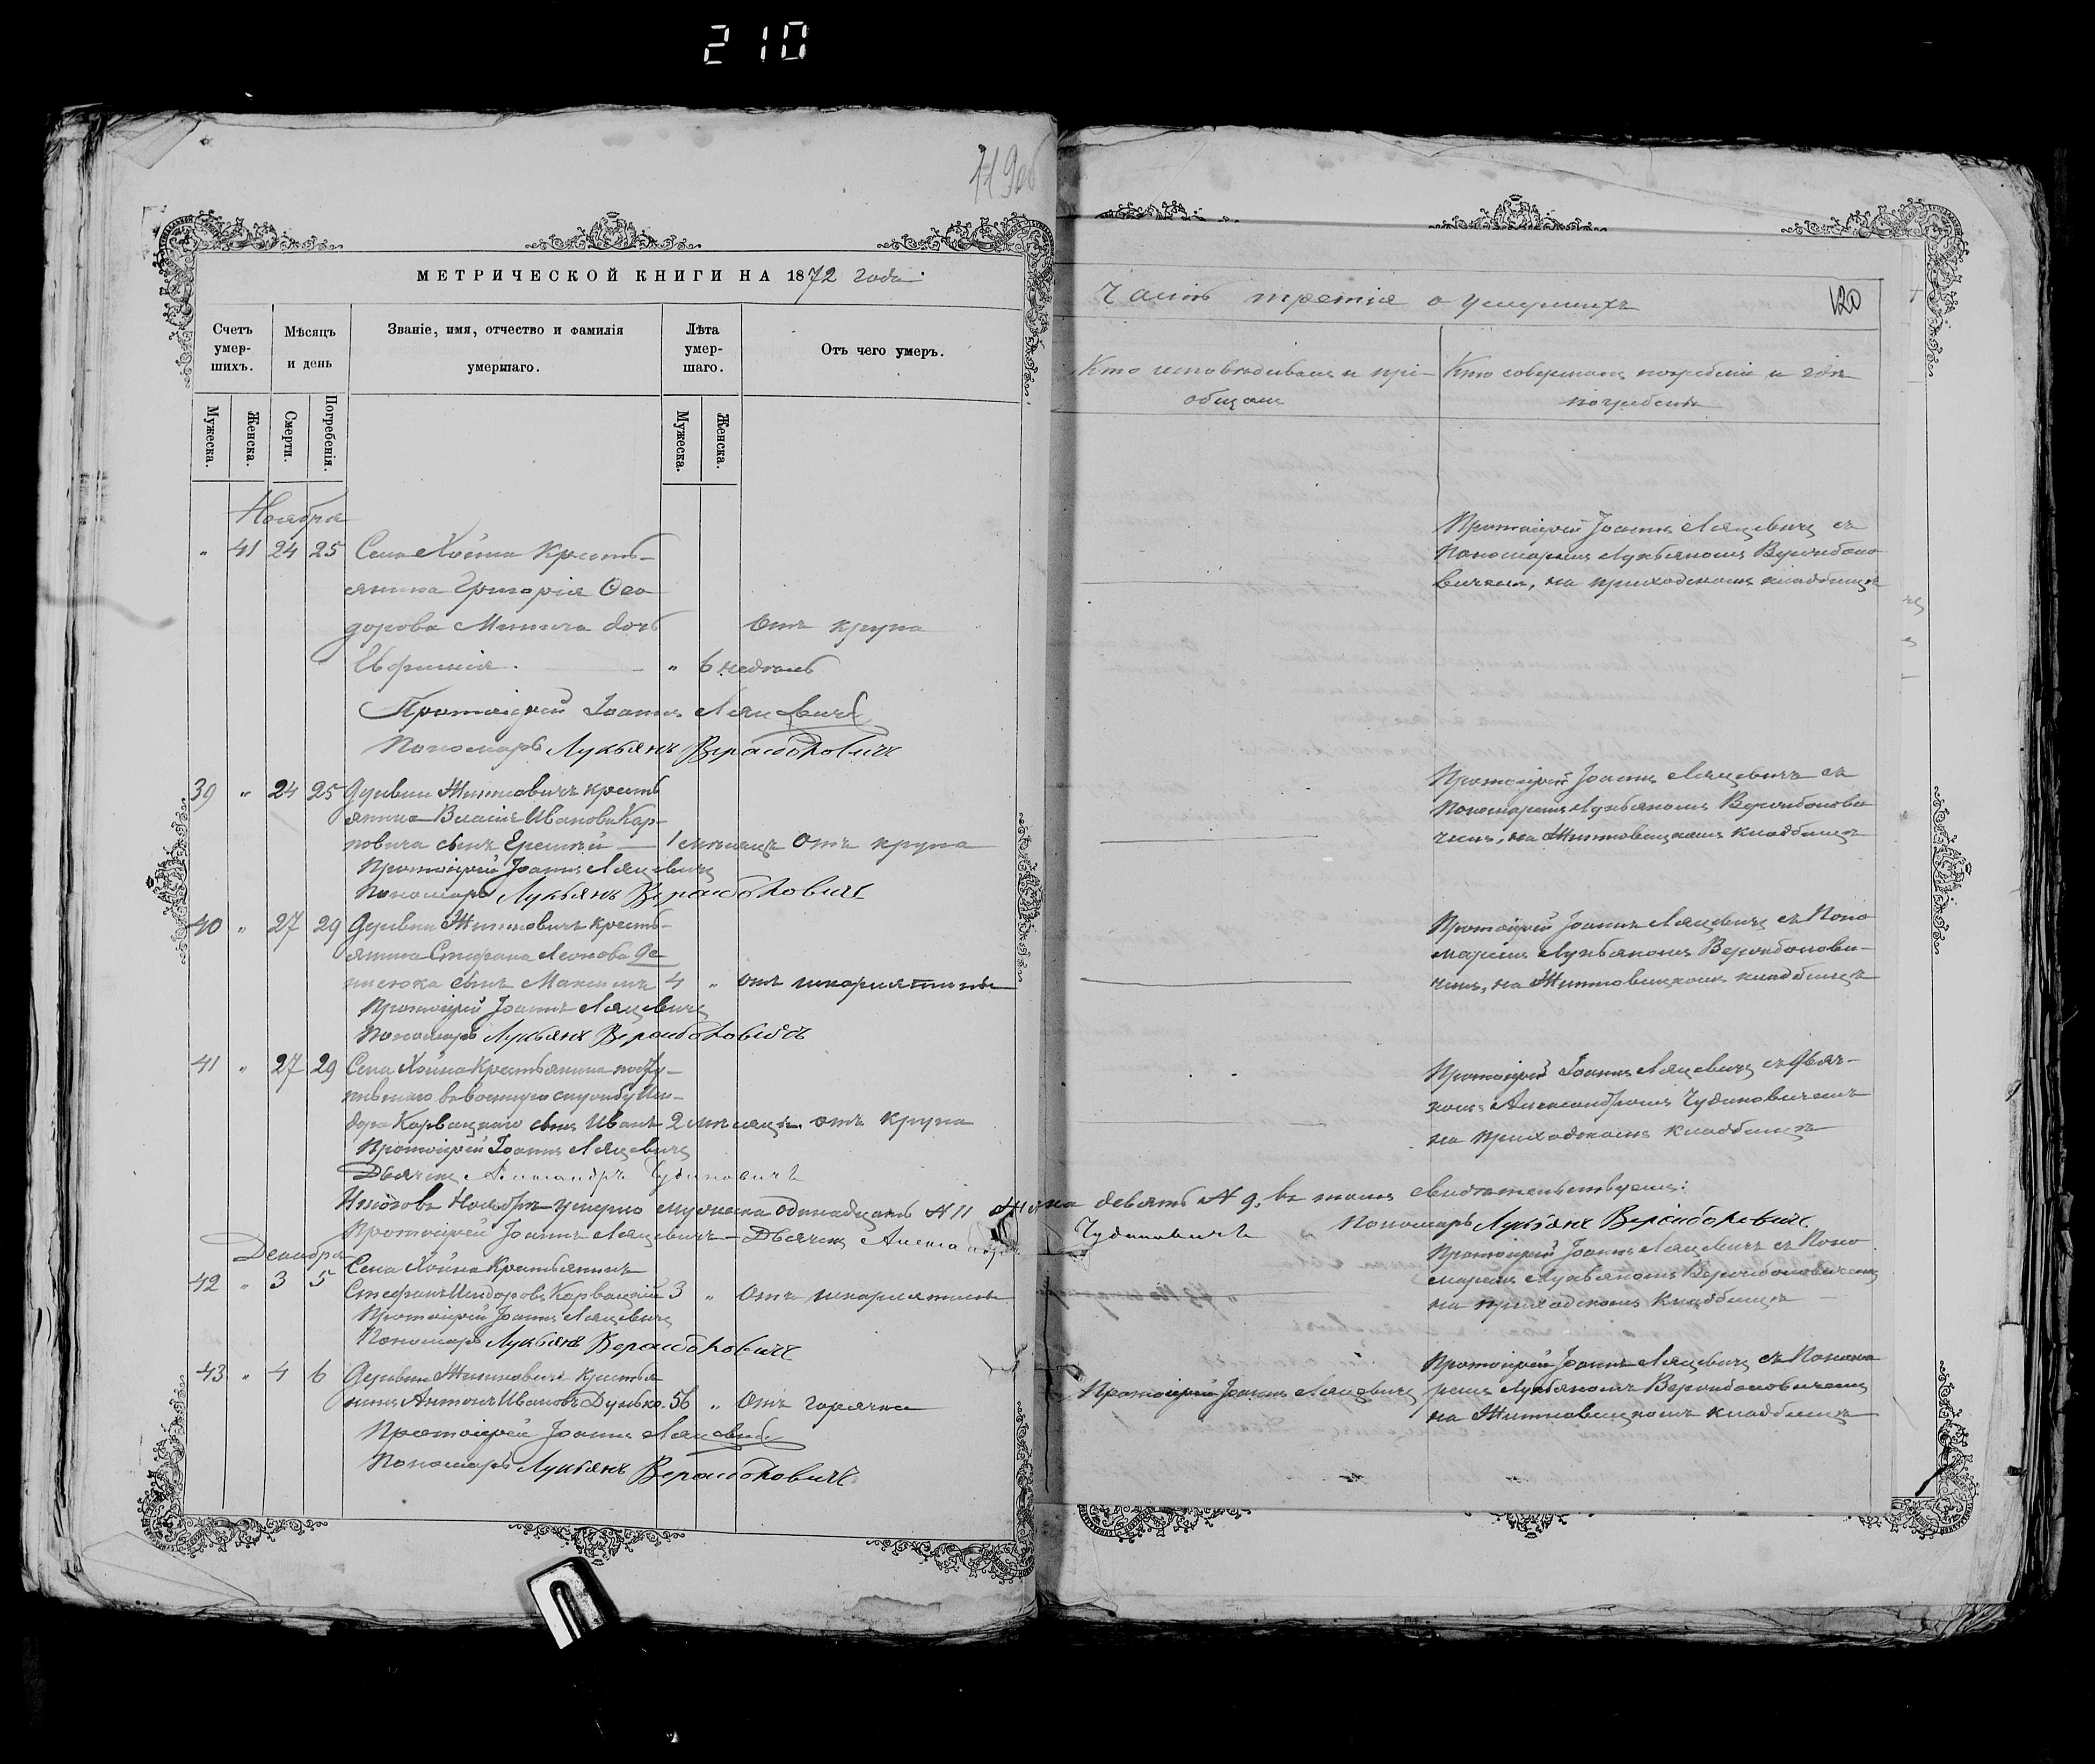 210
119 об
МЕТРИЧЕСКОЙ КНИГИ НА 1872 года
Счетъ умер-шихъ.
Мѣсяцъ и день
Званіе, имя, отчество и фамилія умершаго.
Лѣта умер-шаго.
Отъ чего умеръ.
Мужеска.
Женска.
Смерти.
Погребенія.
Мужеска.
Женска.
Ноября
" 41 24 25 Села Хойна Кресть-
янина Григорія Ѳео-
дорова Минича дочь Отъ крупа
Евфимія. " 6 недѣль
Протоіерей Іоаннъ Ляцевичъ
Пономарь Лукьянъ
39 " 24 25 Деревни Житновичъ кресть
янина Власія Иванова Кар-
повича сынъ Еремѣй — 1 мѣсяцъ Отъ крупа
Протоіерей Іоаннъ Ляцевичъ
Пономарь Лукьянъ
40 " 27 29 Деревни Житновичъ кресть-
янина Стефана Леонова Де-
нисюка сынъ Максимъ 4 " отъ шкарлятины
Протоіерей Іоаннъ Ляцевичъ
Пономарь Лукьянъ
41 " 27 29 Села Хойна Крестьянина посту-
пившаго въ военную службу Иси-
дора Карвацкаго сынъ Иванъ 2 мѣсяцъ отъ крупа
Протоіерей Іоаннъ Ляцевичъ
Дьячекъ Александръ Чудиновичъ
Итого въ Ноябрѣ умерло мужеска одинадцать N 11 Женска девять N 9. въ томъ свидѣтельствуемъ:
Протоіерей Іоаннъ Ляцевичъ — Дьячекъ Александръ Чудиновичъ Пономарь Лукьянъ
Декабря
Села Хойна Крестьянинъ
42 " 3 5 Стефанъ Исидоровъ Карвацкій 3 " Отъ шкарлятины
Протоіерей Іоаннъ Ляцевичъ
Пономарь Лукьянъ
43 " 4 6 Деревни Житновичъ крестья
нинъ Антонъ Ивановъ Дунько. 56 " Отъ горячки
Протоіерей Іоаннъ Ляцевичъ
Пономарь Лукьянъ
Часть третія о умершихъ
120
Кто исповѣдывалъ и прі-
общалъ
Кто совершалъ погребеніе и гдѣ
погребены
Протоіерей Іоаннъ Ляцевичъ съ
Пономаремъ Лукьяномъ
вичемъ, на приходскомъ кладбищѣ
Протоіерей Іоаннъ Ляцевичъ съ
Пономаремъ Лукьяномъ
чемъ, на Житновицкомъ кладбищѣ
Протоіерей Іоаннъ Ляцевичъ съ Поно
маремъ Лукьяномъ
чемъ, на Житновицкомъ кладбищѣ
Протоіерей Іоаннъ Ляцевичъ съ Дьяч-
комъ Александромъ Чудиновичемъ
на приходскомъ кладбищѣ
Протоіерей Іоаннъ Ляцевичъ съ Поно
маремъ Лукьяномъ
на приходскомъ кладбищѣ
Протоіерей Іоаннъ Ляцевичъ
Протоіерей Іоаннъ Ляцевичъ съ Понома
ремъ Лукьяномъ
на Житновицкомъ кладбищѣ